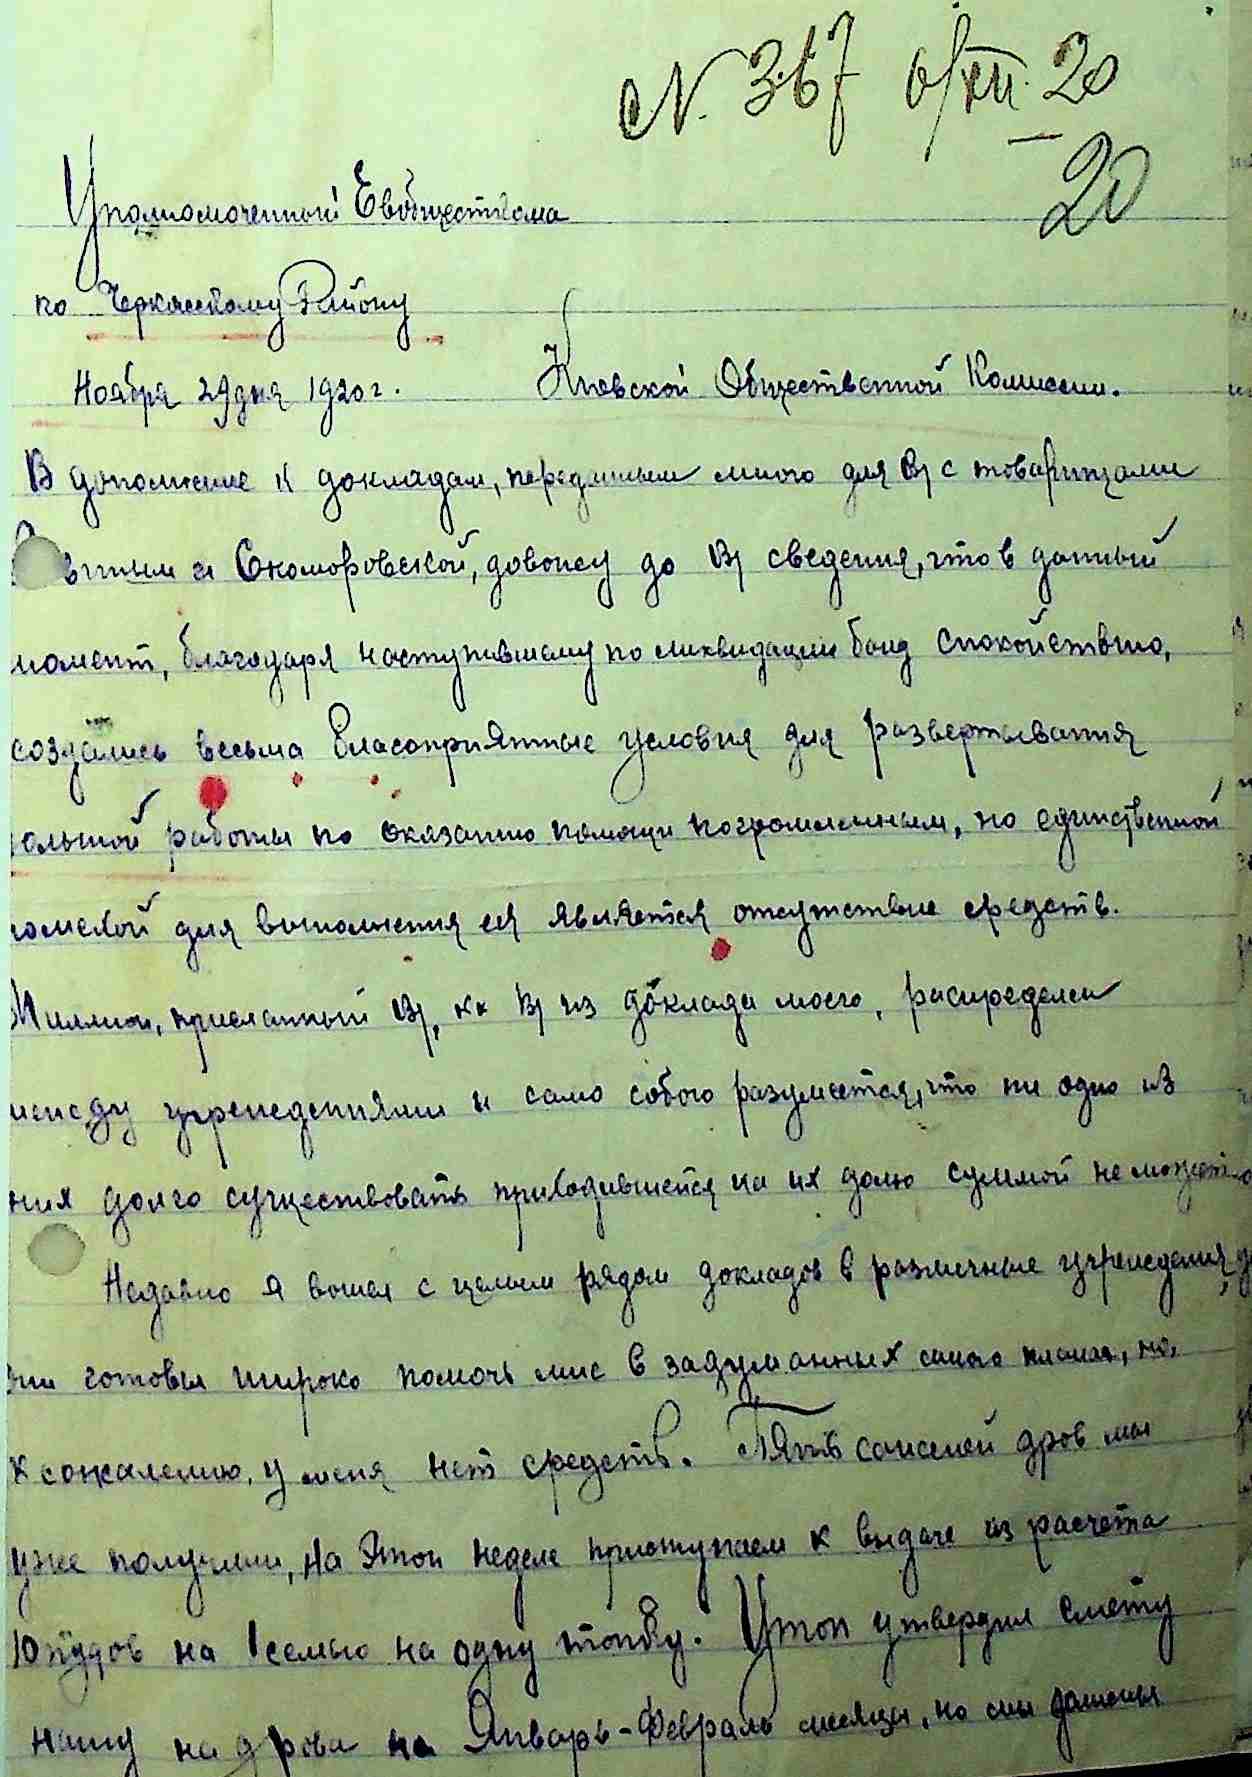 N. 367 6/XII 20
20
Уполномоченный Евобщесткома
по Черкасскому Району
Ноября 29 дня 1920 г. Киевской Общественной Комиссии.
В дополнение к докладам, переданным мною для В/ с товарищами
и Скоморовской, довожу до В/ сведения, что в данный
момент, благодаря наступившему по ликвидации банд спокойствию,
создались весьма благоприятные условия для развертывания
большой работы по оказанию помощи погромленным, но единственной
помехой для выполнения ея является отсутствие средств.
Миллион, присланный В/, кк В/ из доклада моего, распределен
между учреждениями и само собою разумеется, что ни одно из
них долго существовать приходившейся на их долю суммой не может.
Недавно я вошел с целым рядом докладов в различные учреждения,
они готовы широко помочь мне в задуманных мною планах, но,
к сожалению, у меня нет средств. Пять сажней дров мы
уже получили, на этой неделе приступаем к выдаче из расчета
10 пудов на 1 семью на одну топку. Утоп утвердил смету
нашу на дрова на Январь-Февраль месяцы, но мы должны